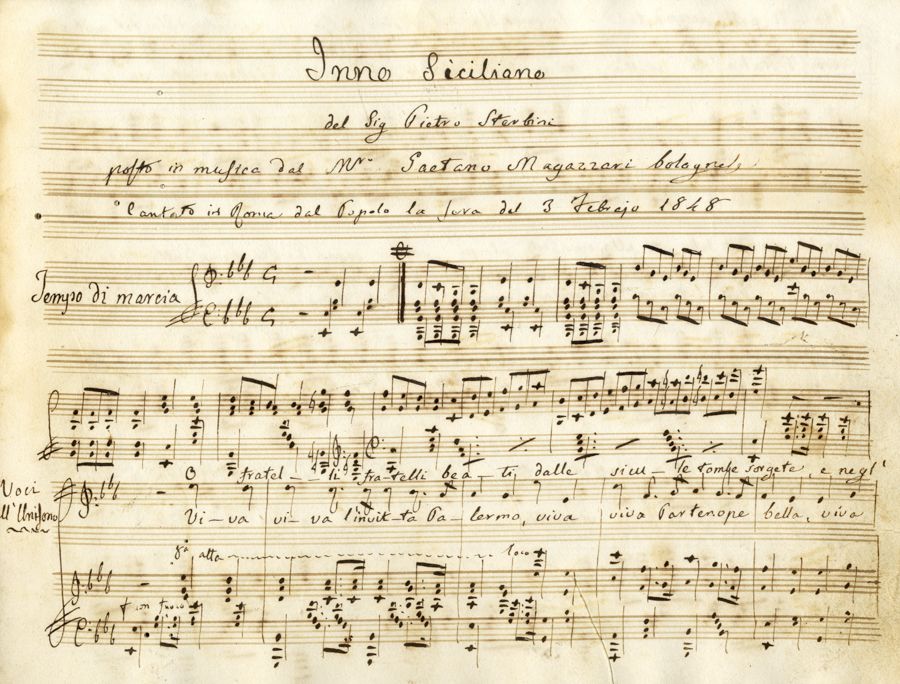 Inno Siciliano
del Sig Pietro Sterbini
posto in musica dal Mro. Gaetano Magazzari bolognes
Cantato in Roma dal Popolo la sera del 3 Febrajo 1848
Tempo di marcia
O fratel-li fratelli bea-ti dalle sicu-le tombe sorgete, e negl'
Voci
all'Unisono
Vi-va vi-va l'invit-ta Pa-lermo, viva viva Partenope bella, viva
8a alta loco
f con fuoco